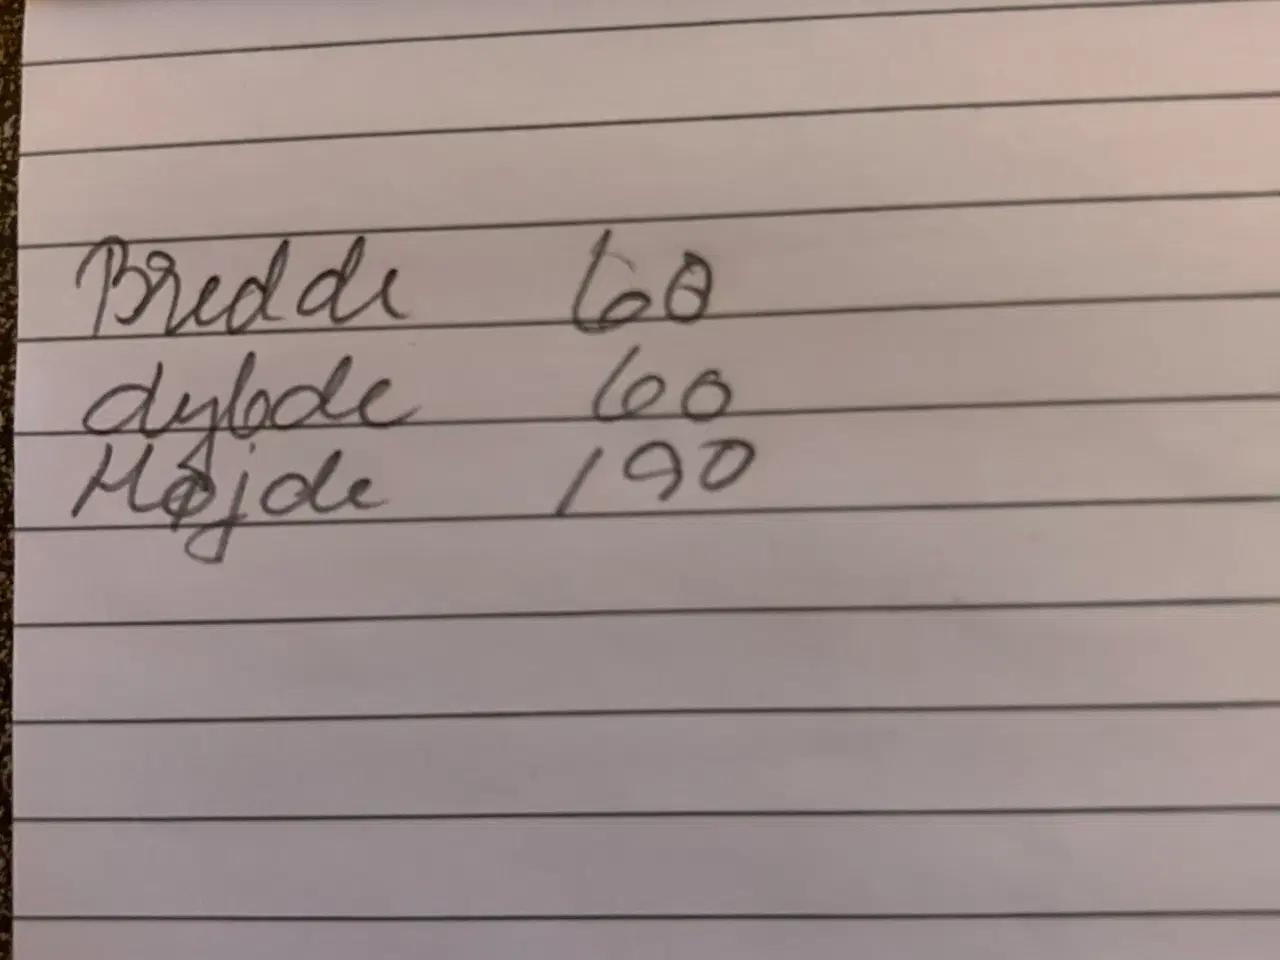 Bredde 60
dybde 60
Højde 190